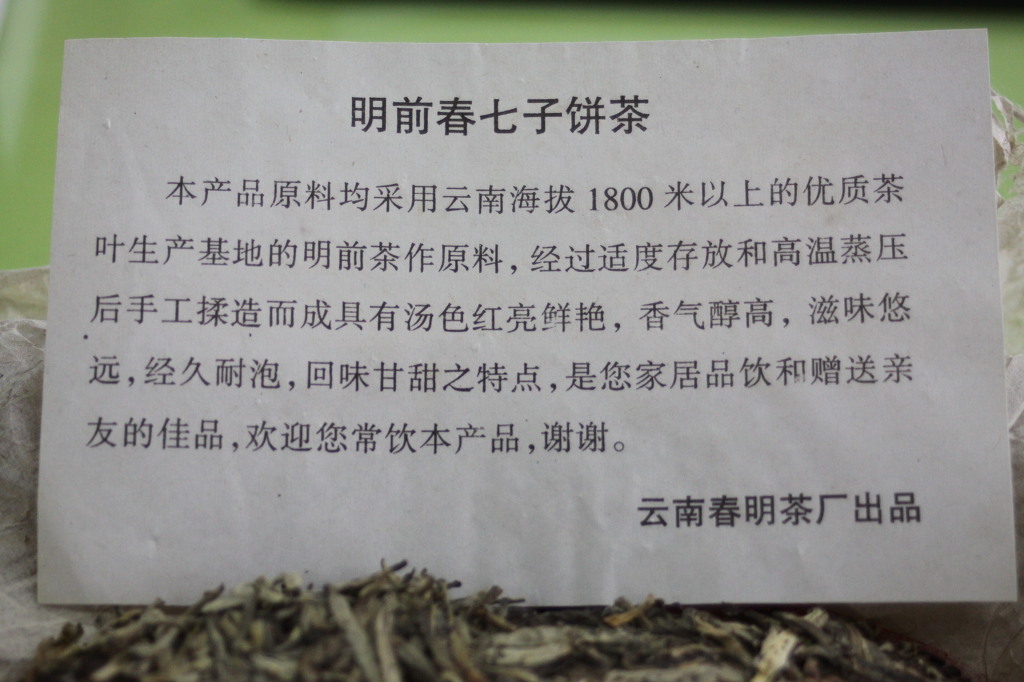 明前春七子饼茶
本产品原料均采用云南海拔1800米以上的优质茶
叶生产基地的明前茶作原料，经过适度存放和高温蒸压
后手工揉造而成具有汤色红亮鲜艳，香气醇高，滋味悠
远，经久耐泡，回味甘甜之特点，是您家居品饮和赠送亲
友的佳品，欢迎您常饮本产品，谢谢。
云南春明茶厂出品